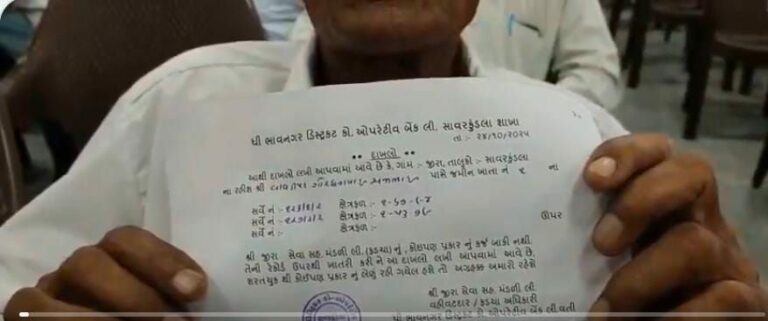 ધી ભાવનગર ડિસ્ટ્રીકટ કો. ઓપરેટીવ બેંક લી. સાવરકુંડલા શાખા
તા :- ૨૪/૧૦/૨૦૨૫
** દાખલો **
આથી દાખલો લખી આપવામાં આવે છે કે, ગામ :- જીરા, તાલુકો :- સાવરકુંડલા
ના રહીશ શ્રી પાસે જમીન ખાતા નં ના
સર્વે નં :- ક્ષેત્રફળ :-
સર્વે નં :- ક્ષેત્રફળ :-
સર્વે નં :- ક્ષેત્રફળ :- ઉપર
શ્રી જીરા સેવા સહ. મંડળી લી. (કડચા) નું , કોઈપણ પ્રકાર નું કર્જ બાકી નથી.
તેની રેકોર્ડ ઉપરથી ખાતરી કરી ને આ દાખલો લખી આપવામાં આવે છે.
શરતચુક થી કોઈપણ પ્રકાર નું લેણું રહી ગયેલ હશે તો અગ્રહક્ક અમારો રહેશે
શ્રી જીરા સેવા સહ. મંડળી લી.
વહીવટદાર / કડચા અધિકારી
ધી ભાવનગર ડિસ્ટ્રીકટ કો ઓપરેટીવ બેંક લી.વતી